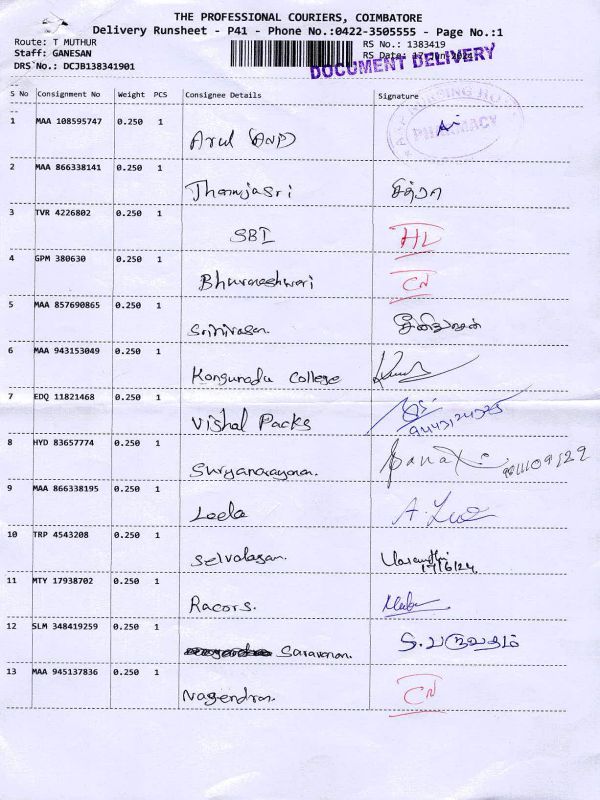 THE PROFESSIONAL COURIERS, COIMBATORE
Delivery Runsheet - P41 - Phone No.:0422-3505555 - Page No.:1
Route: T MUTHUR
Staff: GANESAN
DRS No.: DCJB138341901
RS No.: 1383419
RS Date: 17-Jun-2024
DOCUMENT DELIVERY
S No Consignment No Weight PCS Consignee Details Signature
PHARMACY
1 MAA 108595747 0.250 1 Arul
2 MAA 866338141 0.250 1 Thamjasri சித்ரா
3 TVR 4226802 0.250 1 SBI HL
4 GPM 380630 0.250 1 Bhuvaneshwari CN
5 MAA 857690865 0.250 1 Srinivasan சீனிவாசன்
6 MAA 943153049 0.250 1 Kongunadu College
7 EDQ 11821468 0.250 1 Vishal Packs
8 HYD 83657774 0.250 1 Suryanarayanan.
9 MAA 866338195 0.250 1 Leela
10 TRP 4543208 0.250 1 Selvalagan. Vasanthi
17/6/24
11 MTY 17938702 0.250 1 Racors.
12 SLM 348419259 0.250 1 Saravanan.
13 MAA 945137836 0.250 1 Nagendran CN